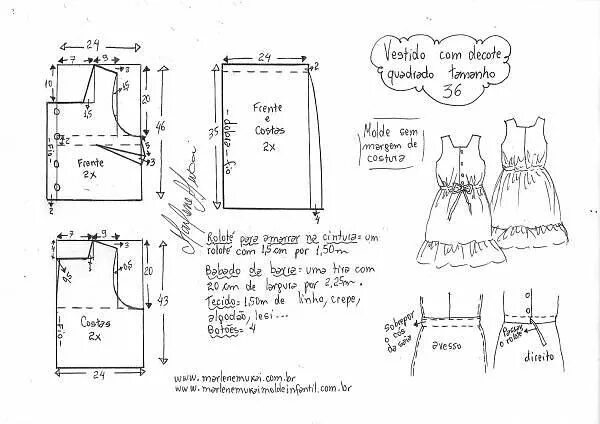 Vestido com decote
quadrado tamanho
36
Molde sem
margem de
costura
24
7
9
3
10
1,5
15
20
46
2
5
3
Fio
Frente
2x
2
24
2
35
dobra - fio
Frente
e
Costas
2x
4
7
3
20
43
Fio
Costas
2x
24
Roloté para amarrar na cintura = um
roloté com 1,5 cm por 1,50m
Babado da barra = uma tira com
20 cm de largura por 2,25m.
Tecido: 1,50m de linho, crepe,
algodão, lesi...
Botões = 4
sobrepor
o cós
da saia
avesso
Passar
o roloté
direito
www.marlenemukai.com.br
www.marlenemukaimoldeinfantil.com.br